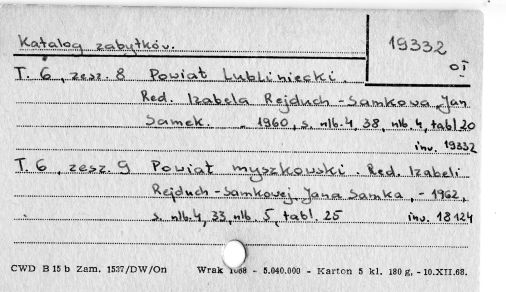 Katalog zabytków.
19332
OI
T. 6, zesz. 8 Powiat Lubliniecki.
Red. Izabela Rejduch-Samkowa, Jan
Samek. - 1960, s. nlb. 4, 38, nlb. 4, tabl 20
inv. 19332
T. 6, zesz. 9 Powiat myszkowski. Red. Izabeli
Rejduch-Samkowej, Jana Samka, - 1962,
s. nlb. 4, 33, nlb. 5, tabl. 25 inv. 18124
CWD B 15 b Zam. 1537/DW/On Wrak 1068 - 5.040.000 - Karton 5 kl. 180 g. - 10.XII.68.